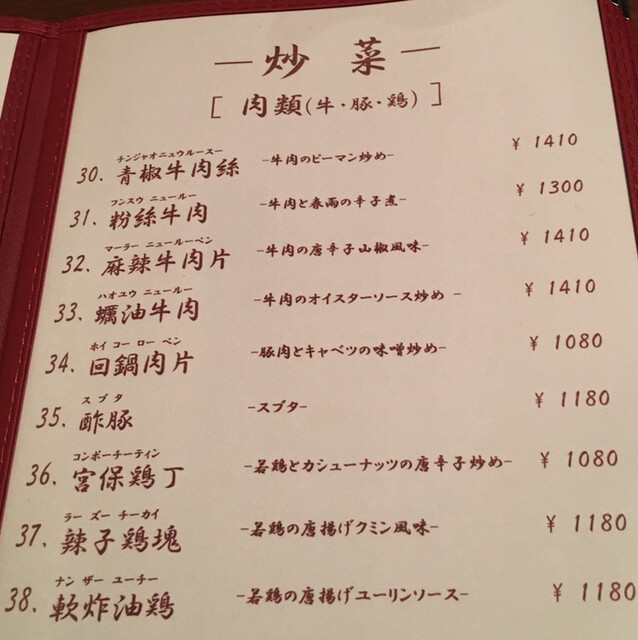 炒 菜
[ 肉類(牛・豚・鶏) ]
チンジャオニュウルースー
30. 青椒牛肉絲 -牛肉のピーマン炒め- ¥ 1410
フンスウ ニュールー
31. 粉絲牛肉 -牛肉と春雨の辛子煮- ¥ 1300
マーラー ニュールーペン
32. 麻辣牛肉片 -牛肉の唐辛子山椒風味- ¥ 1410
ハオユウ ニュールー
33. 蠣油牛肉 -牛肉のオイスターソース炒め - ¥ 1410
ホイ コー ロー ペン
34. 回鍋肉片 -豚肉とキャベツの味噌炒め- ¥ 1080
スブタ
35. 酢豚 -スブタ- ¥ 1180
コンポーチーティン
36. 宮保鶏丁 -若鶏とカシューナッツの唐辛子炒め- ¥ 1080
ラー ズー チーカイ
37. 辣子鶏塊 -若鶏の唐揚げクミン風味- ¥ 1180
ナン ザー ユーチー
38. 軟炸油鶏 -若鶏の唐揚げユーリンソース- ¥ 1180